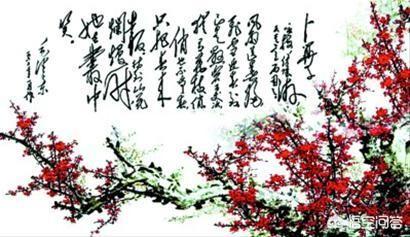 卜算子
风雨送春归
飞雪迎春到
已是悬崖百丈冰
犹有花枝
俏俏也不争春
只把春来
报待到山花
烂漫时
她在丛中
笑
毛泽东
悟空问答